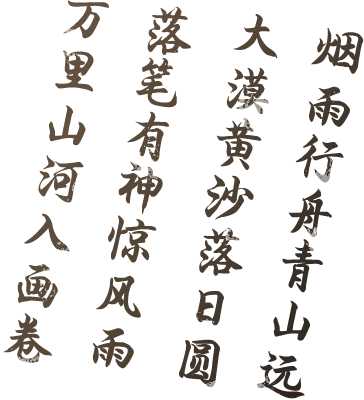 烟雨行舟青山远
大漠黄沙落日圆
落笔有神惊风雨
万里山河入画卷